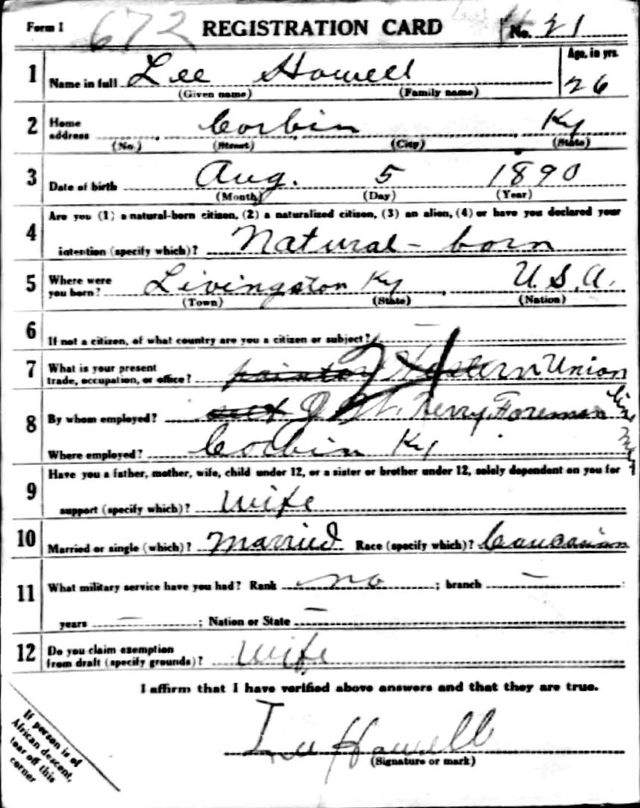 Form 1 672 REGISTRATION CARD No. 21
1 Name in full Lee Howell Age, in yrs.
(Given name) (Family name) 26
2 Home address Corbin Ky
(No.) (Street) (City) (State)
3 Date of birth Aug. 5 1890
(Month) (Day) (Year)
4 Are you (1) a natural-born citizen, (2) a naturalized citizen, (3) an alien, (4) or have you declared your
intention (specify which)? Natural-born
5 Where were you born? Livingston Ky U.S.A.
(Town) (State) (Nation)
6 If not a citizen, of what country are you a citizen or subject? —
7 What is your present trade, occupation, or office? 24 Western Union
8 By whom employed? Terry, Foreman
Where employed? Corbin Ky
9 Have you a father, mother, wife, child under 12, or a sister or brother under 12, solely dependent on you for
support (specify which)? Wife
10 Married or single (which)? Married Race (specify which)? Caucasian
11 What military service have you had? Rank no ; branch —
years — ; Nation or State —
12 Do you claim exemption from draft (specify grounds)? Wife
I affirm that I have verified above answers and that they are true.
Lee Howell
(Signature or mark)
If person is of
African descent,
tear off this
corner